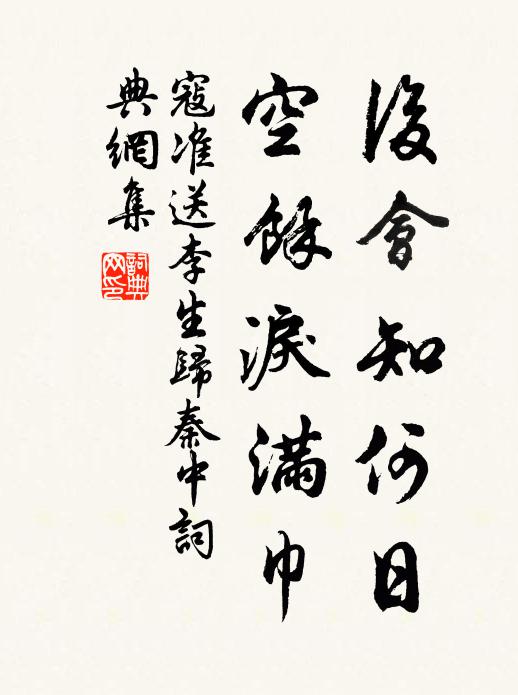 後會知何日
空餘淚滿巾
寇准送李生歸秦中詞
典網集
詞典網印